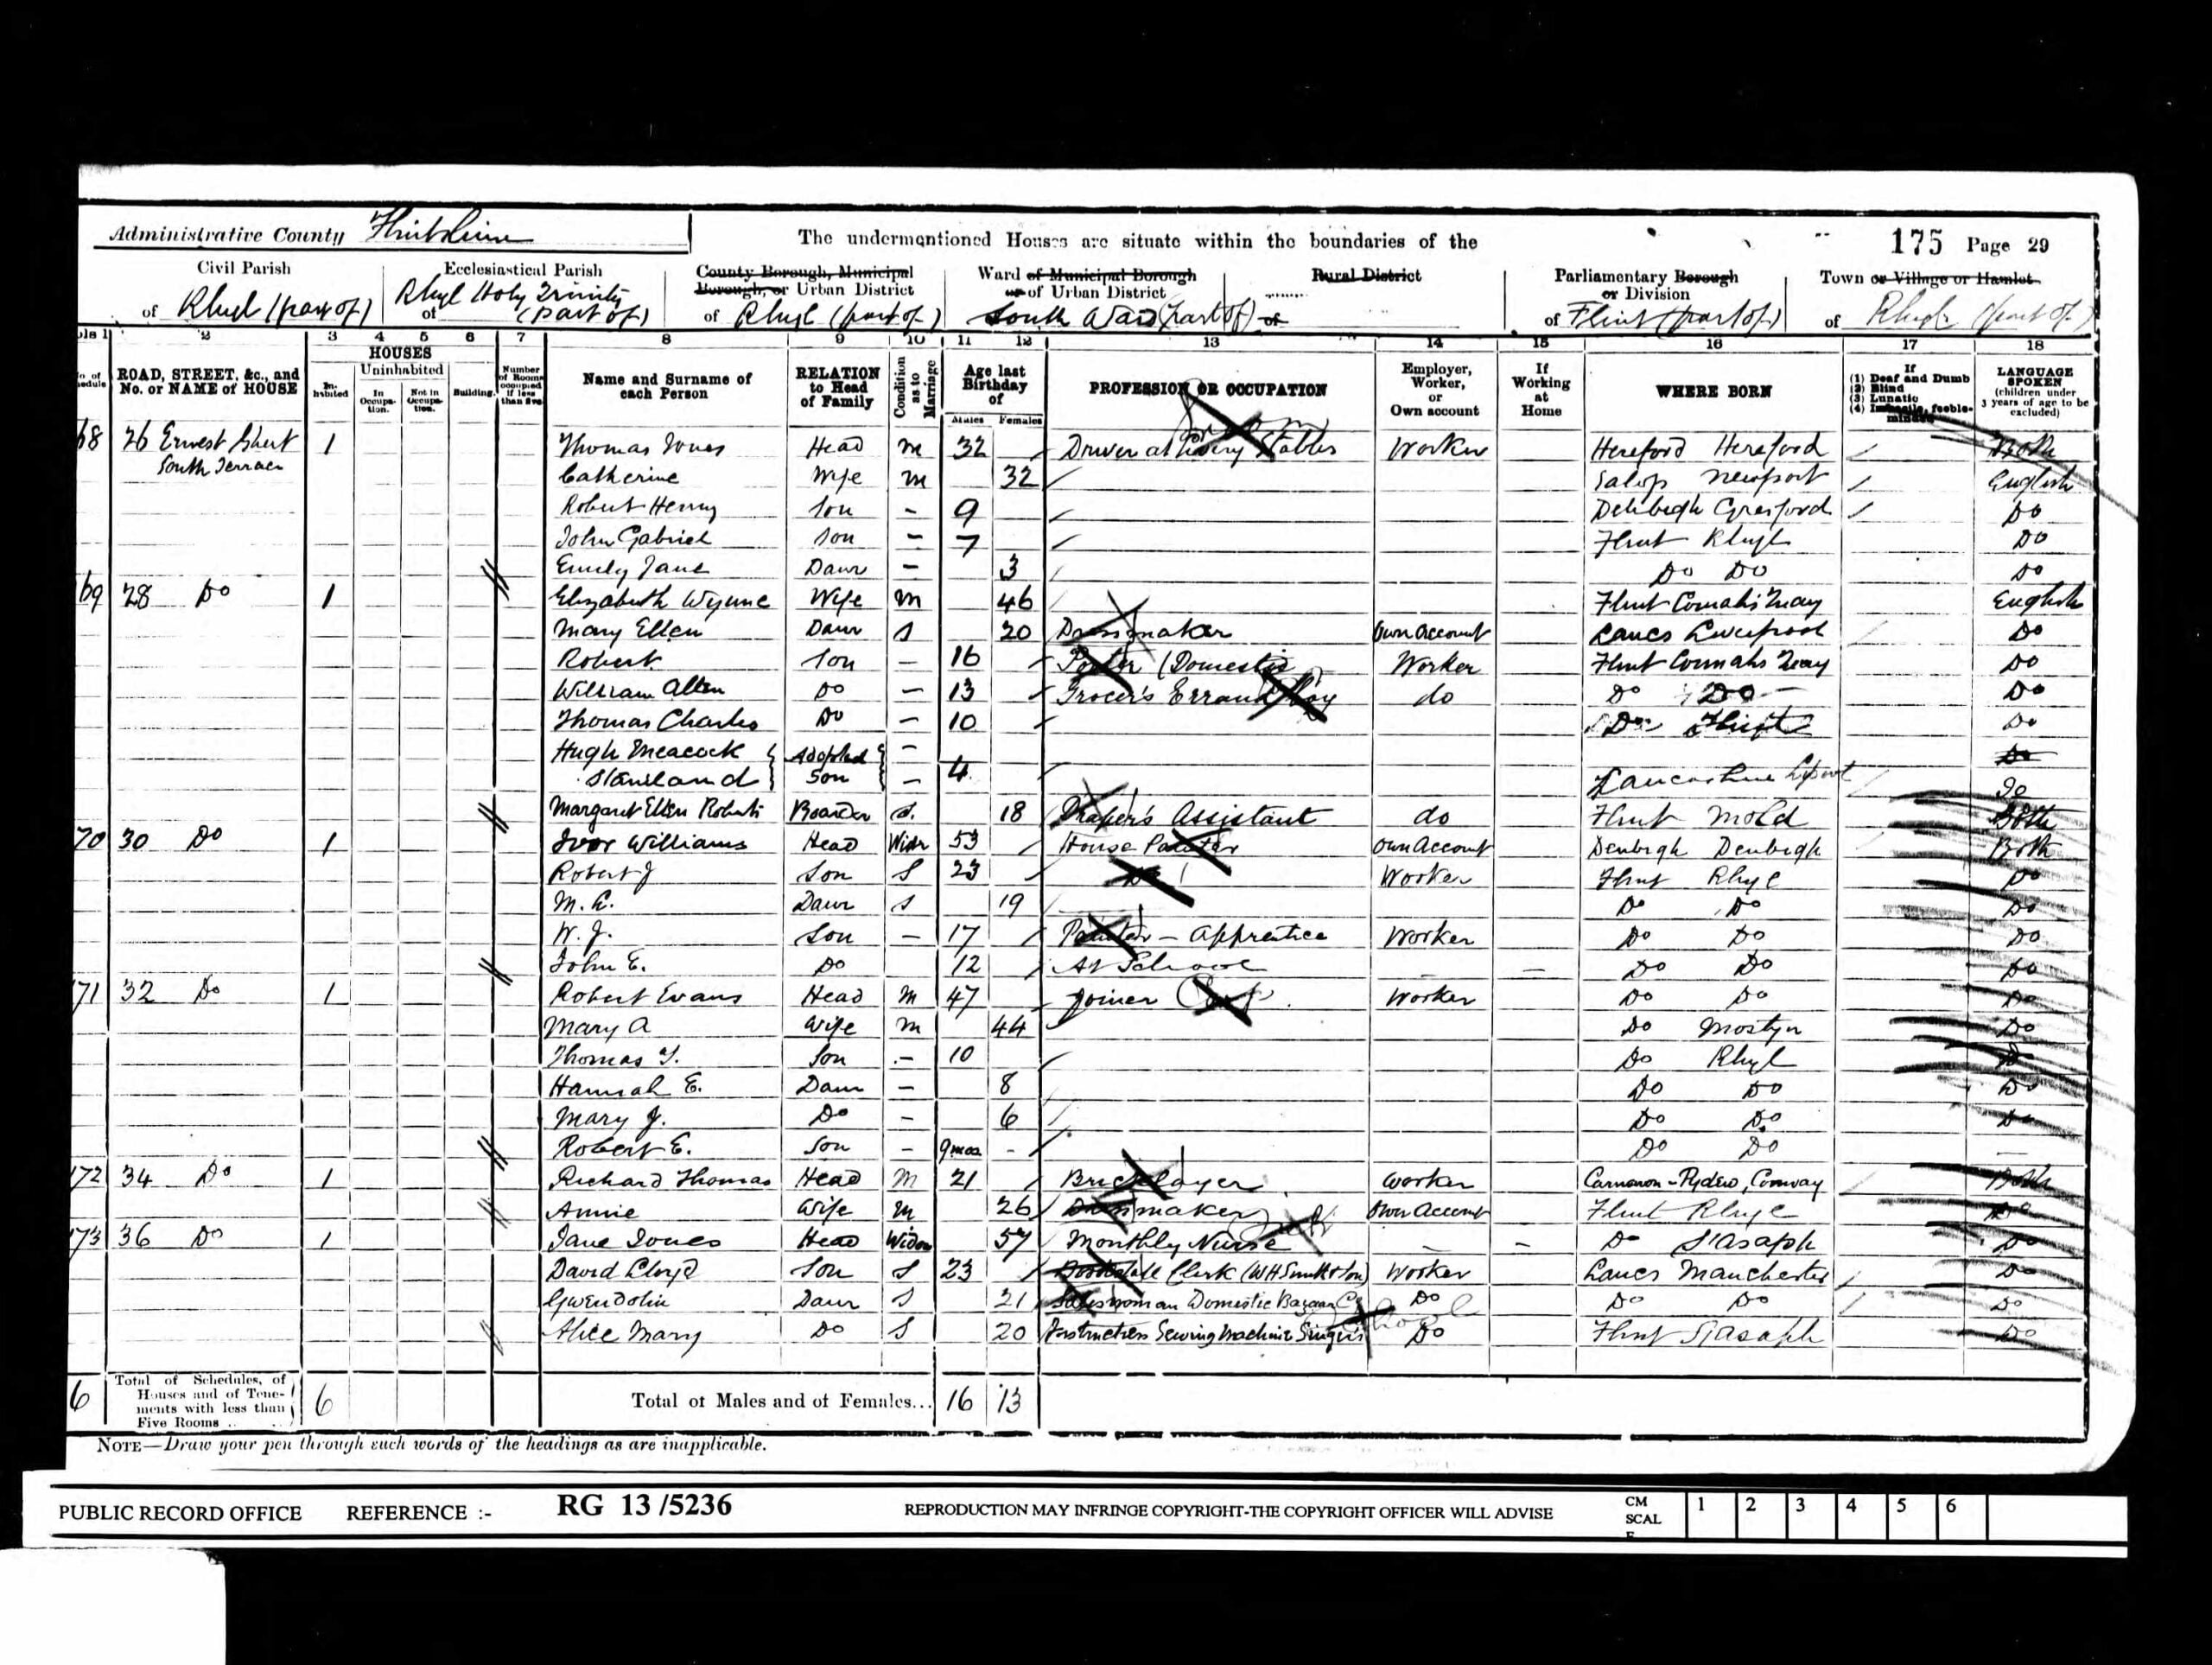 Administrative County Flintshire
The undermentioned Houses are situate within the boundaries of the
175 Page 29
Civil Parish of Rhyl (part of)
Ecclesiastical Parish of Rhyl Holy Trinity (part of)
County Borough, Municipal Borough, or Urban District of Rhyl (part of)
Ward of Municipal Borough or of Urban District South Ward (part of) of
Rural District
Parliamentary Borough or Division of Flint (part of)
Town or Village or Hamlet of Rhyl (part of)
1 2 3 4 5 6 7 8 9 10 11 12 13 14 15 16 17 18
ROAD, STREET, &c., and No. or NAME of HOUSE
HOUSES
Inhabited
Uninhabited
In Occupation.
Not in Occupation.
Building.
Number of Rooms occupied if less than five
Name and Surname of each Person
RELATION to Head of Family
Condition as to Marriage
Age last Birthday of
Males Females
PROFESSION OR OCCUPATION
Employer, Worker, or Own account
If Working at Home
WHERE BORN
If (1) Deaf and Dumb (2) Blind (3) Lunatic (4) Imbecile, feeble-minded
LANGUAGE SPOKEN (children under 3 years of age to be excluded)
68 26 Ernest Street 1 Thomas Jones Head M 32 Driver at Livery Stables Worker Hereford Hereford Both
South Terrace Catherine Wife M 32 Salop Newport English
Robert Henry Son – 9 Denbigh Gresford Do
John Gabriel Son – 7 Flint Rhyl Do
Emily Jane Daur – 3 Do Do Do
69 28 Do 1 Elizabeth Wynne Wife M 46 Flint Connahs Quay English
Mary Ellen Daur S 20 Dressmaker Own Account Lancs Liverpool Do
Robert Son – 16 Porter (Domestic Worker Flint Connahs Quay Do
William Allen Do – 13 Grocer's Errand Boy do Do Do Do
Thomas Charles Do – 10 Do Flint Do
Hugh Meacock Adopted – Do
Stanland Son – 4 Lancashire Lpool Do
Margaret Ellen Roberts Boarder S. 18 Draper's Assistant do Flint Mold Both
70 30 Do 1 Ivor Williams Head Widr 53 House Painter Own Account Denbigh Denbigh Both
Robert J Son S 23 Do Worker Flint Rhyl Do
M. E. Daur S 19 Do Do Do
W. J. Son – 17 Painter – Apprentice Worker Do Do Do
John E. Do 12 At School – – Do Do Do
71 32 Do 1 Robert Evans Head M 47 Joiner Worker Do Do Do
Mary A Wife M 44 Do Mostyn Do
Thomas Y. Son – 10 Do Rhyl Do
Hannah E. Daur – 8 Do Do Do
Mary J. Do – 6 Do Do Do
Robert E. Son – 9mos – Do Do –
172 34 Do 1 Richard Thomas Head M 21 Bricklayer Worker Carnarvon - Pydew, Conway Both
Annie Wife M 26 Dressmaker Own Account Flint Rhyl Do
173 36 Do 1 Jane Jones Head Widow 57 Monthly Nurse – – Do S'Asaph Do
David Lloyd Son S 23 Bookstall Clerk (WH Smith & Son) Worker Lancs Manchester Do
Gwendolin Daur S 21 Saleswoman Domestic Bazaar Co Do Do Do Do
Alice Mary Do S 20 Instructress Sewing Machine Singer's Do Flint St Asaph Do
6 Total of Schedules, of Houses and of Tenements with less than Five Rooms 6 Total of Males and of Females... 16 13
NOTE—Draw your pen through such words of the headings as are inapplicable.
PUBLIC RECORD OFFICE REFERENCE :- RG 13/5236 REPRODUCTION MAY INFRINGE COPYRIGHT-THE COPYRIGHT OFFICER WILL ADVISE CM SCALE 1 2 3 4 5 6